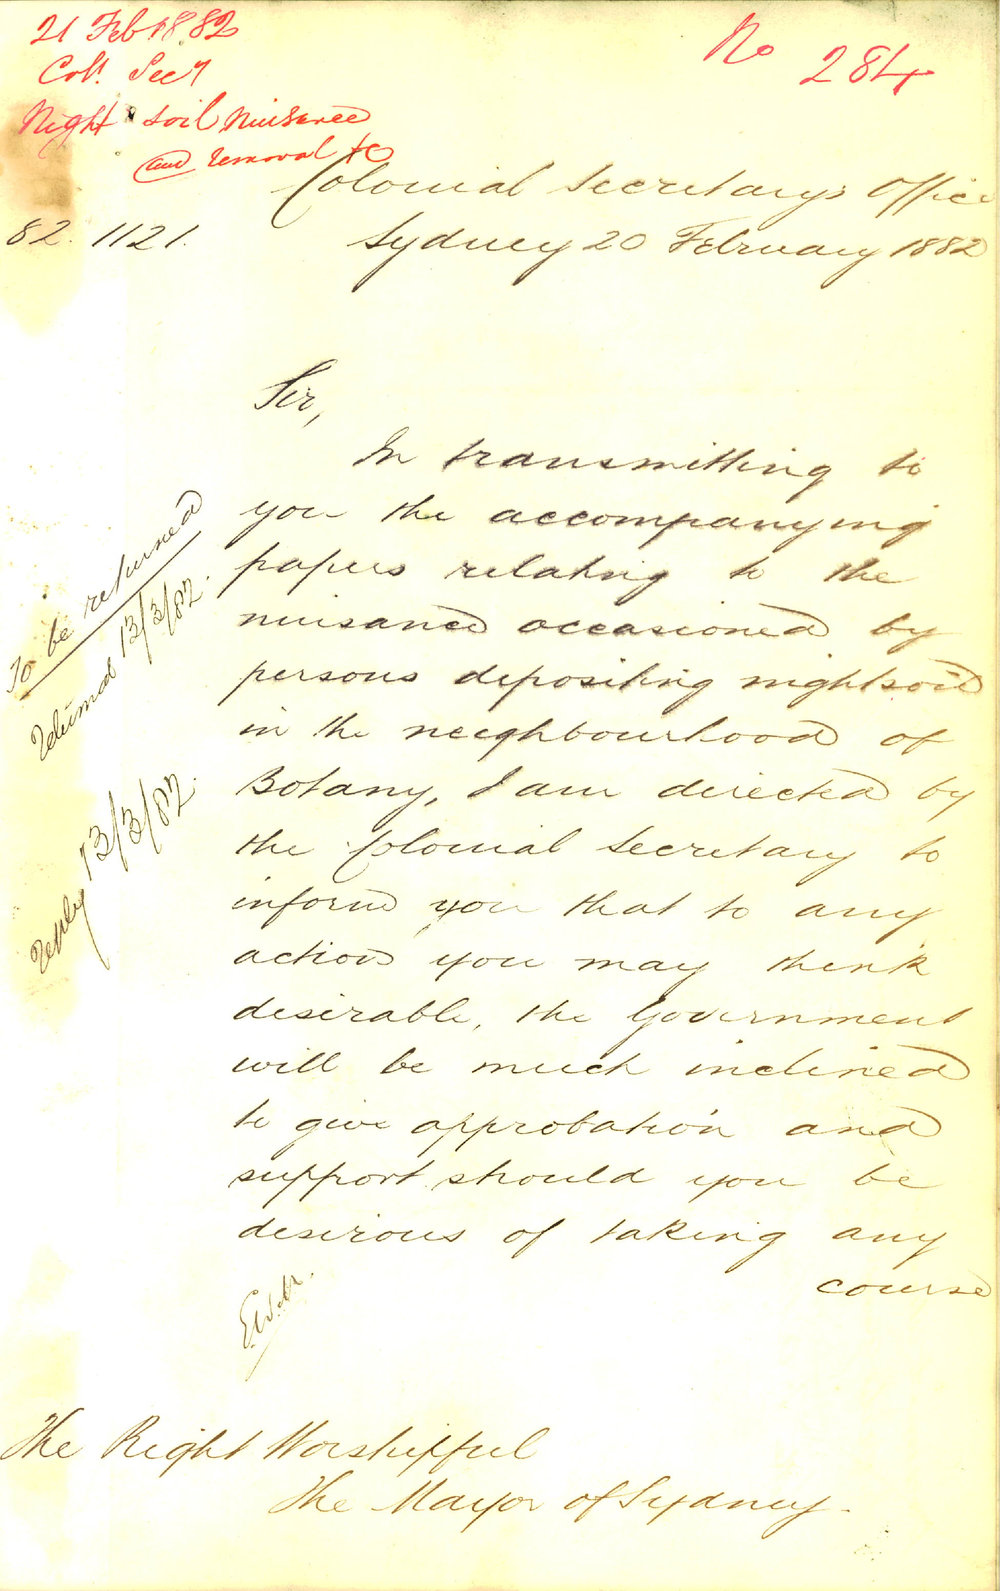 21 Feb 1882
No 284
Coll. Secy
Night soil Nuisance
and removal to
Colonial Secretary's Office
82. 1121.
Sydney 20 February 1882
Sir,
In transmitting to
you the accompanying
papers relating to the
nuisance occasioned by
persons depositing nightsoil
in the neighbourhood of
Botany, I am directed by
the Colonial Secretary to
inform you that to any
action you may think
desirable, the Government
will be much inclined
to give approbation and
support should you be
desirous of taking any
course
To be returned
Returned 13/3/82.
Reply 13/3/82.
The Right Worshipful
The Mayor of Sydney.